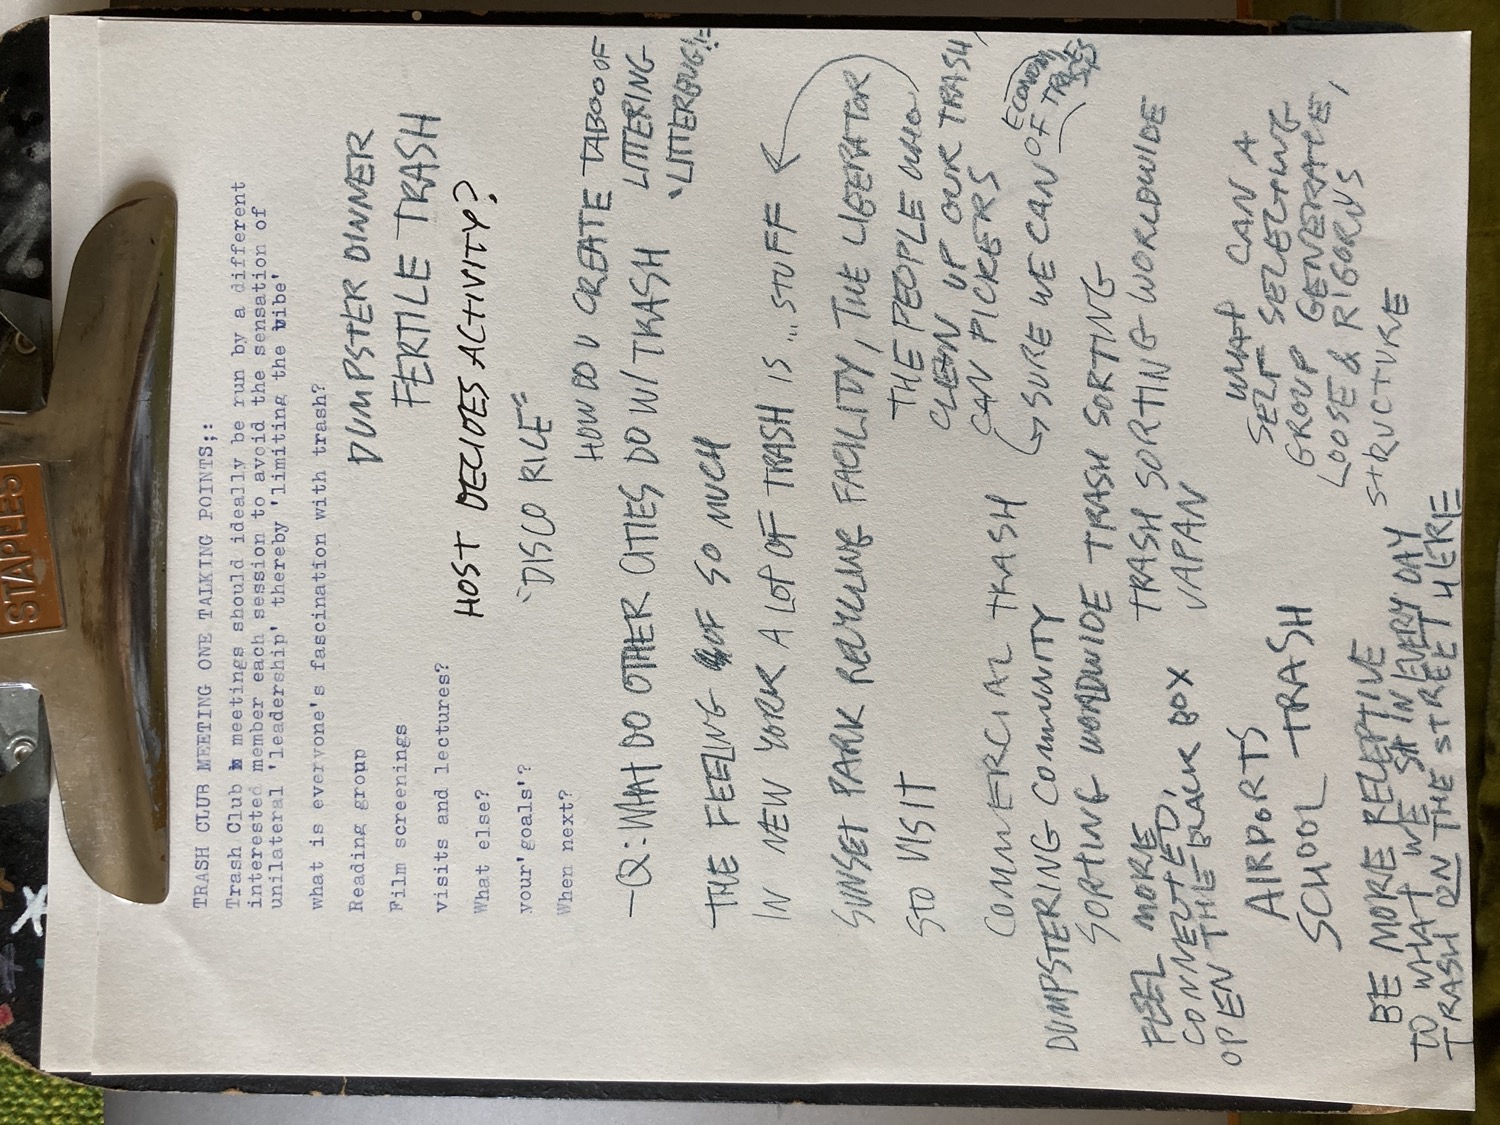 STAPLES
TRASH CLUB MEETING ONE TALKING POINTS;:
Trash Club meetings should ideally be run by a different
interested member each session to avoid the sensation of
unilateral 'leadership' thereby 'limiting the vibe'
what is everyone's fascination with trash?
Reading group
Film screenings
visits and lectures?
What else?
your'goals'?
When next?
DUMPSTER DINNER
FERTILE TRASH
HOST DECIDES ACTIVITY?
"DISCO RICE"
HOW DO U CREATE TABOO OF
LITTERING
"LITTERBUG!"
-Q: WHAT DO OTHER CITIES DO W/ TRASH
THE FEELING OF SO MUCH
IN NEW YORK A LOT OF TRASH IS ... STUFF
SUNSET PARK RECYCLING FACILITY, THE LIBERATOR
STO VISIT
THE PEOPLE WHO
CLEAN UP OUR TRASH,
CAN PICKERS
SURE WE CAN
ECONOMY
OF
COMMERCIAL TRASH
DUMPSTERING COMMUNITY
SORTING WORLDWIDE TRASH SORTING
TRASH SORTING WORLDWIDE
JAPAN
FEEL MORE
CONNECTED,
OPEN THE BLACK BOX
AIRPORTS
SCHOOL TRASH
WHAT CAN A
SELF SELECTING
GROUP GENERATE,
LOOSE & RIGOROUS
STRUCTURE
BE MORE RECEPTIVE
TO WHAT WE SH IN EVERY DAY
TRASH ON THE STREET HERE